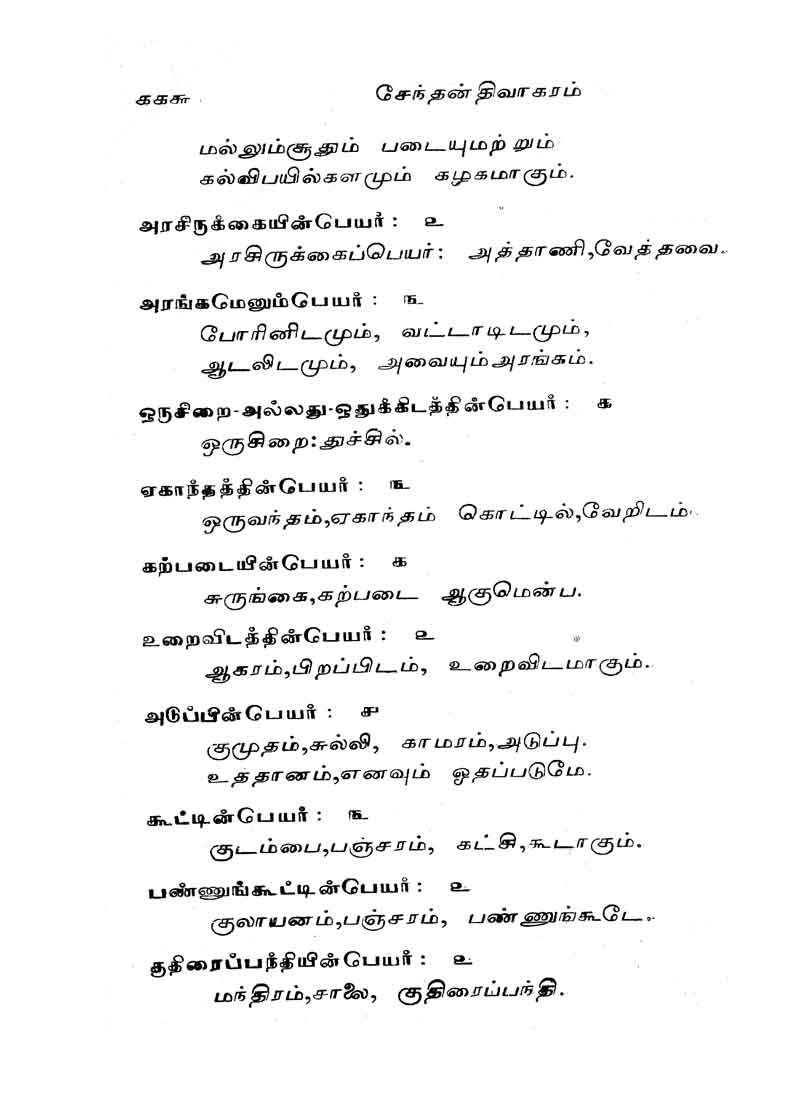 ௧௧௮ சேந்தன் திவாகரம்
மல்லும்சூதும் படையுமற்றும்
கல்விபயில்களமும் கழகமாகும்.
அரசிருக்கையின்பெயர் : ௨
அரசிருக்கைப்பெயர்: அத்தாணி,வேத்தவை.
அரங்கமெனும்பெயர் : ௩
போரினிடமும், வட்டாடிடமும்,
ஆடலிடமும், அவையும்அரங்கும்.
ஒருசிறை-அல்லது-ஒதுக்கிடத்தின்பெயர் : ௧
ஒருசிறை:துச்சில்.
ஏகாந்தத்தின்பெயர் : ௩
ஒருவந்தம்,ஏகாந்தம் கொட்டில்,வேறிடம்
கற்படையின்பெயர் : ௧
சுருங்கை,கற்படை ஆகுமென்ப.
உறைவிடத்தின்பெயர் : ௨
ஆகரம்,பிறப்பிடம், உறைவிடமாகும்.
அடுப்பின்பெயர் : ௪
குமுதம்,சுல்லி, காமரம்,அடுப்பு.
உத்தானம்,எனவும் ஓதப்படுமே.
கூட்டின்பெயர் : ௩
குடம்பை,பஞ்சரம், கட்சி,கூடாகும்.
பண்ணுங்கூட்டின்பெயர் : ௨
குலாயனம்,பஞ்சரம், பண்ணுங்கூடே.
குதிரைப்பந்தியின்பெயர் : ௨
மந்திரம்,சாலை, குதிரைப்பந்தி.